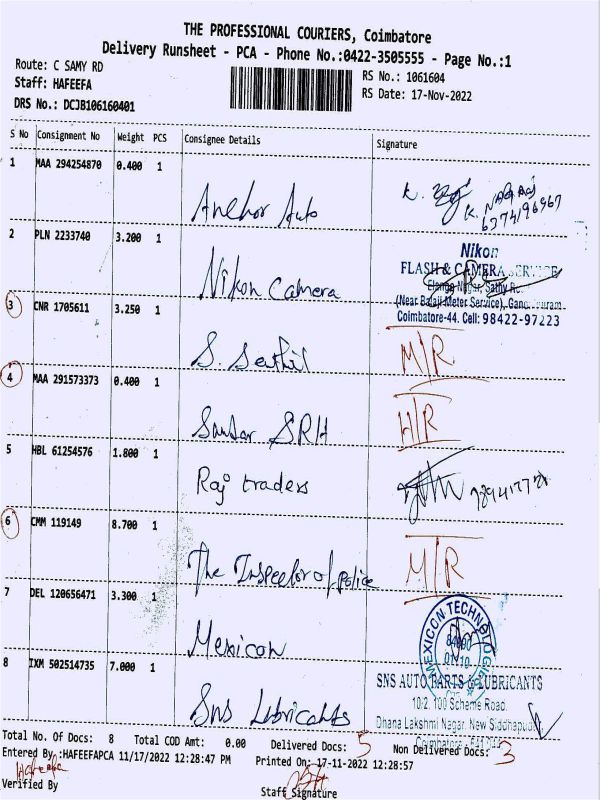 THE PROFESSIONAL COURIERS, Coimbatore
Delivery Runsheet - PCA - Phone No.:0422-3505555 - Page No.:1
Route: C SAMY RD
Staff: HAFEEFA
DRS No.: DCJB106160401
RS No.: 1061604
RS Date: 17-Nov-2022
S No Consignment No Weight PCS Consignee Details Signature
1 MAA 294254870 0.400 1
Anchor Auto
K. NAGARAJ
6374196967
2 PLN 2233740 3.200 1
Nikon Camera
Nikon
FLASH & CAMERA SERVICE
Sathy
(Near Balaji Meter Service),
Coimbatore-44. Cell: 98422-97223
3 CNR 1705611 3.250 1
S. Senthil
M/R
4 MAA 291573373 0.400 1
SRH
H/R
5 HBL 61254576 1.800 1
Raj traders
6 CMM 119149 8.700 1
The Inspector of police
M/R
7 DEL 120656471 3.300 1
Mexicon
MEXICON TECHNOLOGIES
8 IXM 502514735 7.000 1
Sns Lubricants
SNS AUTO PARTS & LUBRICANTS
10/2, 100 Scheme Road,
Dhana Lakshmi Nagar, New Siddhapudur,
Total No. Of Docs: 8 Total COD Amt: 0.00 Delivered Docs: 5 Non Delivered Docs: 3
Entered By :HAFEEFAPCA 11/17/2022 12:28:47 PM Printed On: 17-11-2022 12:28:57
Hafeefa
Verified By Staff Signature